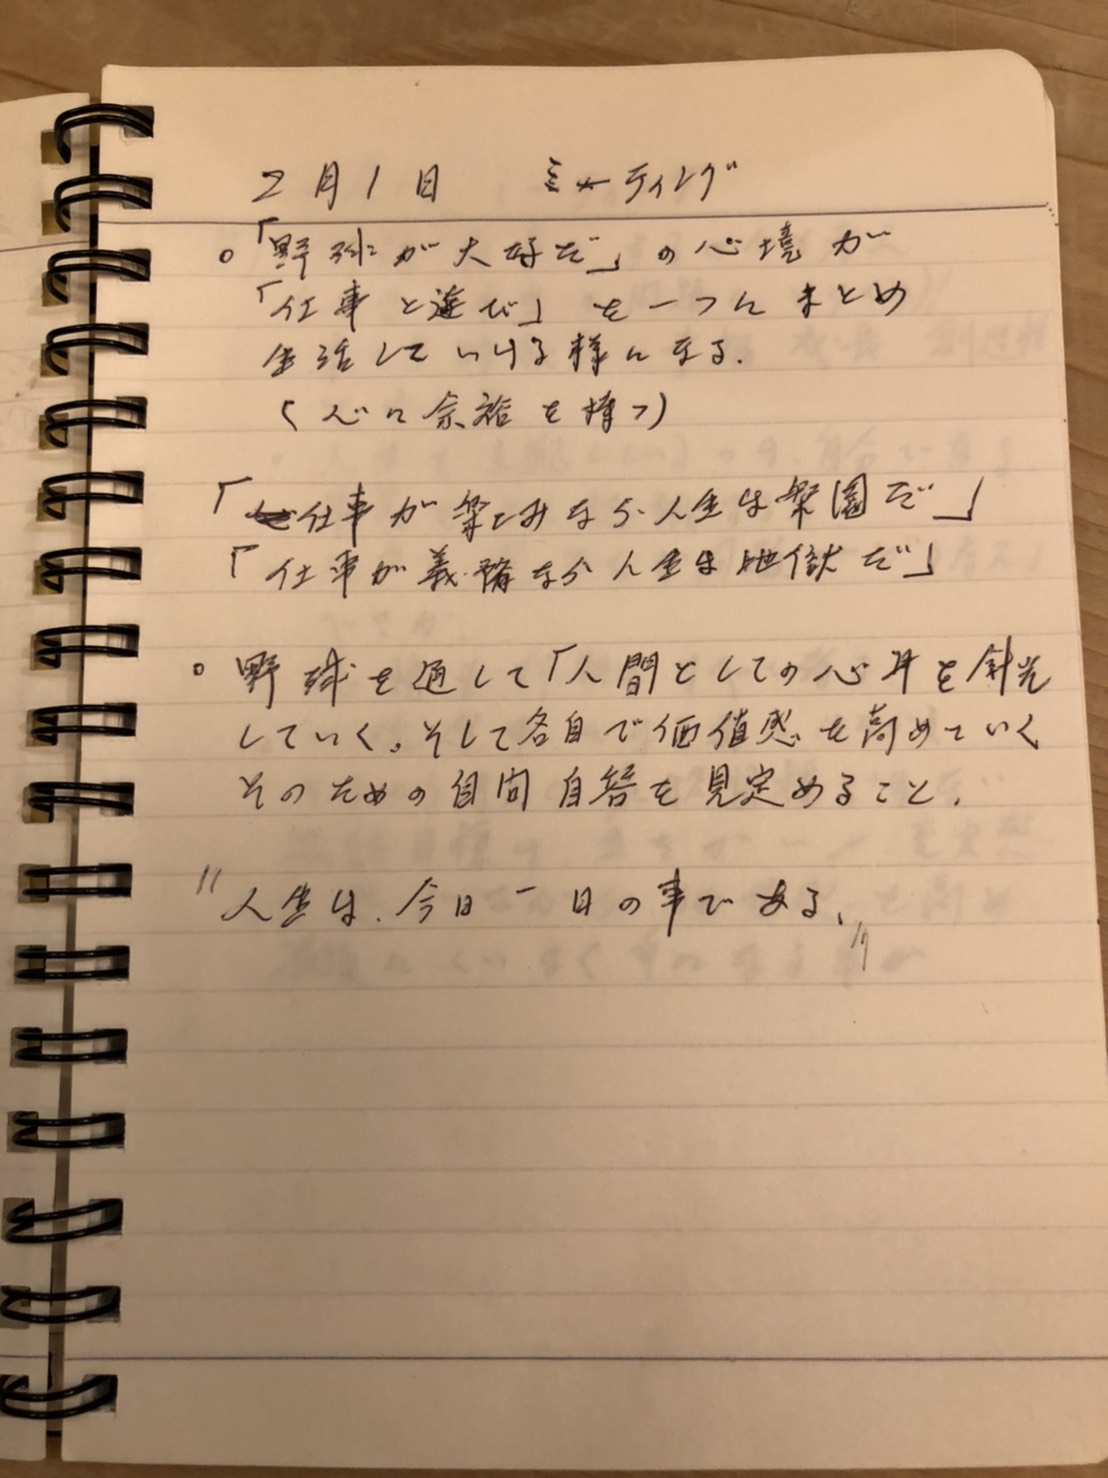 2月1日 ミーティング
○「野球が大好だ」の心境が
「仕事と遊び」を一つにまとめ
生活していける様になる.
(心に余裕を持つ)
「仕事が楽しみなら人生は楽園だ」
「仕事が義務なら人生は地獄だ」
○ 野球を通して「人間としての心
していく。そして各自で価値感を高めていく
そのための自問自答を見定めること.
"人生は、今日一日の事である、"